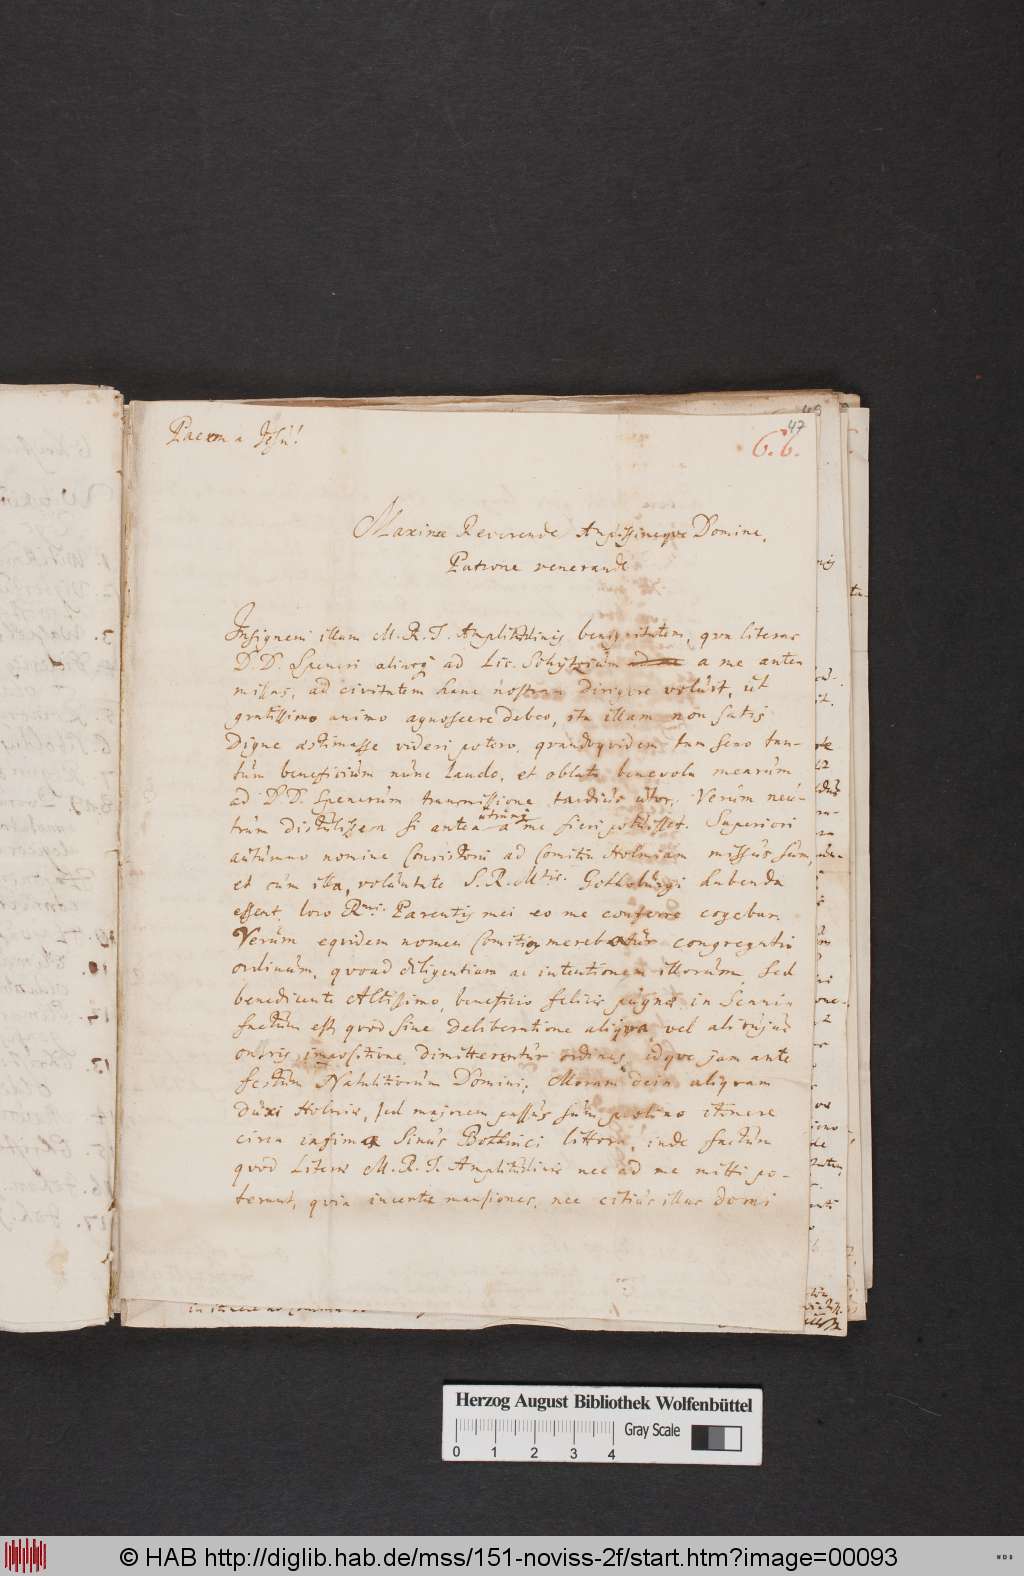 47
Pacem a Jesu!
6.6.
Maxime Reverende Amplissimeque Domine,
Patrone venerande
Insignem illam M. R. T. Amplitudinis benignitatem, qva literas
D. D. Speneri aliasq ad Lic. Schützium a me antea
missas, ad civitatem hanc nostram dirigere voluit, ut
gratissimo animo agnoscere debeo, ita illam non satis
digne æstimasse videri potero, qvandoqvidem tam sero tan-
tum beneficium nunc laudo, et oblata benevola mearum
ad D. D. Spenerum transmissione tardius utor. Verum neu-
trum distulissem si antea utrumq a me fieri potuisset. Superiori
autumno nomine Consistorii ad Comitia Holmiam missus sum,
et cum illa, voluntate S. R. Mtis. Gothoburgi habenda
essent, loco Rmi. Parentis mei eo me conferre cogebar.
Verum eqvidem nomen Comitiorum merebatur congregatio
ordinum, qvoad diligentiam ac intentionem illorum, sed
benedicente Altissimo, beneficio felicis pugnæ in Scania
factum est qvod sine deliberatione aliqva, vel alicujus
oneris impositione dimitterentur ordines, idqve jam ante
festum Natalitiorum Domini. Moram dein aliqvam
duxi Holmiæ, sed majorem passus sum prolixo itinere
circa infima Sinus Bothnici littora, inde factum
qvod Literæ M. R. T. Amplitudinis nec ad me mitti po-
terant, qvia incertæ mansiones, nec citius illas domi
Herzog August Bibliothek Wolfenbüttel
Gray Scale
0 1 2 3 4
© HAB http://diglib.hab.de/mss/151-noviss-2f/start.htm?image=00093